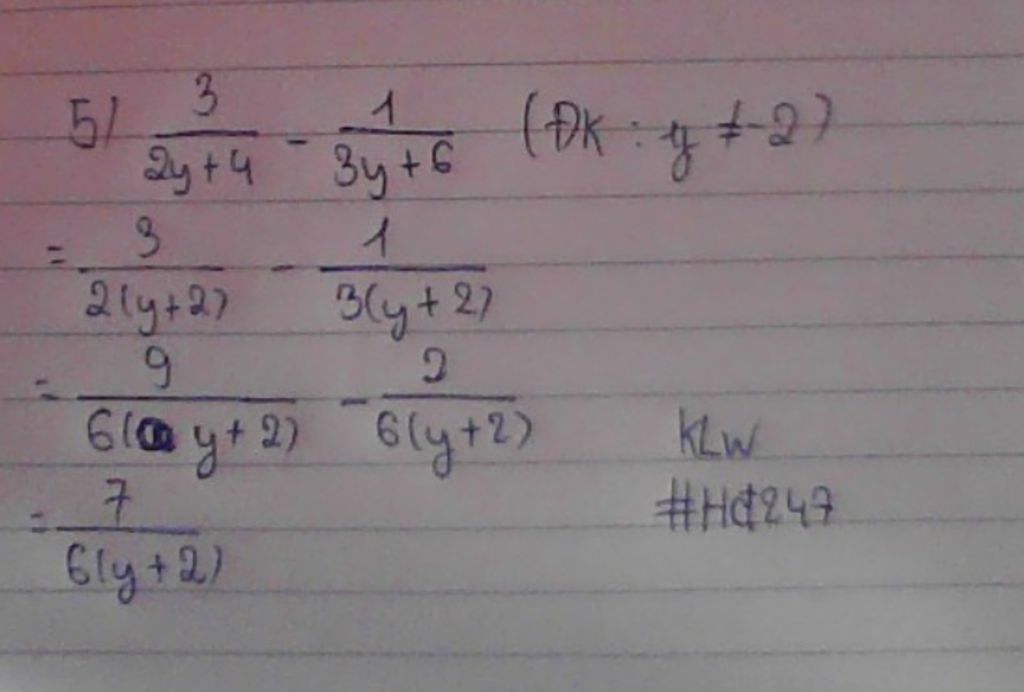 5) 3/(2y+4) - 1/(3y+6) (ĐK: y ≠ -2)
= 3/(2(y+2)) - 1/(3(y+2))
= 9/(6(y+2)) - 2/(6(y+2))
= 7/(6(y+2))
KLW
#Hđ247